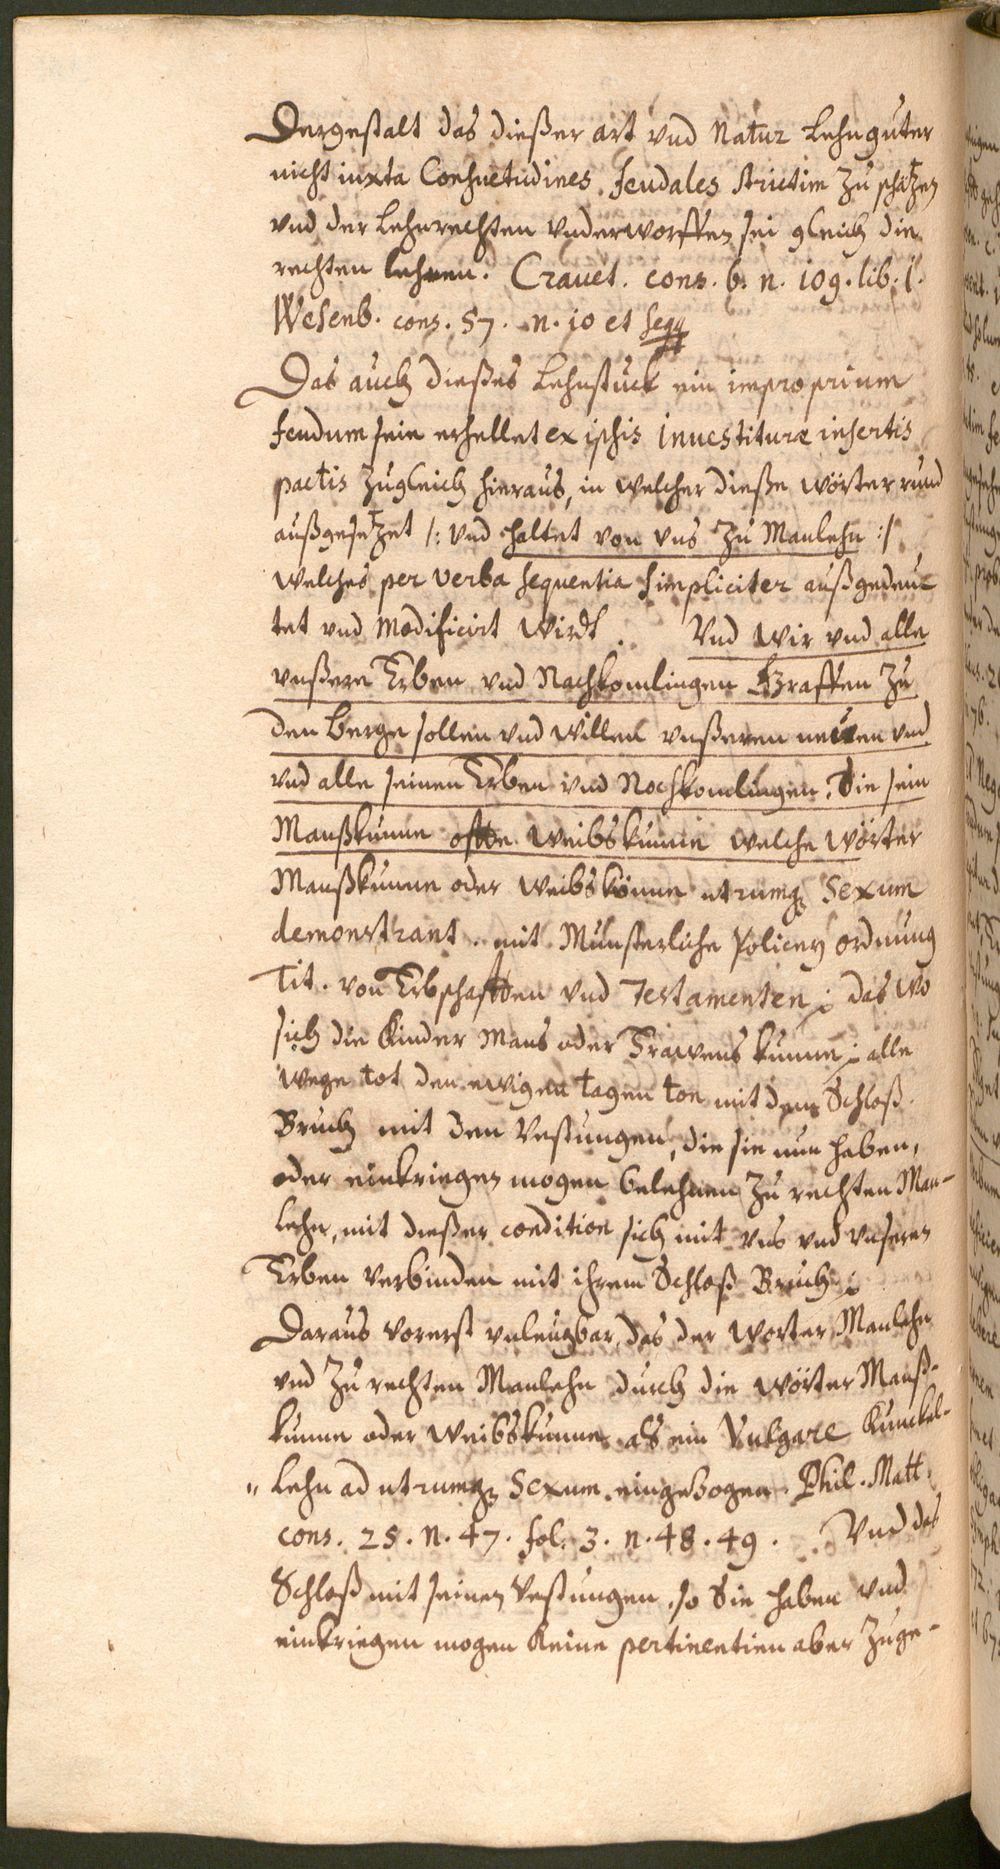 Dergestalt das dießer art vnd Natur Lehnguter
nicht iuxta Consuetudines feudales strictim zu schätzen
vnd der Lehnrechten vnderworffen sei gleich die
rechten lehnen. Crauet. cons. 6. n. 109. lib. 1.
Wesenb. cons. 57. n. 10 et seqq
Das auch dießes Lehnstuck ein improprium
feudum sein erhellet ex ipsis inuestituræ insertis
pactis zugleich hieraus, in welcher dieße wörter rund
außgesetzet /: vnd haltet von vns zu Manlehn :/
welches per verba sequentia simpliciter außgedeut
tet vnd modificirt wirdt. Vnd wir vnd alle
vnßere Erben vnd Nachkomlingen Graffen zu
den Berge sollen vnd willen vnßeren neuen vnd
vnd alle seinen Erben vnd Nochkomlingen, Sie sein
Manßkunne ofte weibskunne welche wörter
Manßkunne oder weibskönne utrumq; sexum
demonstrant. mit Munsterliche Policey ordnung
Tit. von Erbschafften vnd Testamenten ; das wo
sich die Kinder Mans oder Frawens kunne ; alle
wege tot den ewigen tagen toe mit dem Schloß
Bruch mit den Vestungen, die sie nun haben,
oder einkriegen mogen belehnen zu rechten Man-
lehn, mit dießer condition sich mit vns vnd vnseren
Erben verbinden mit ihrem Schloß Bruch ;
Daraus vorerst vnleugbar, das der worter Manlehn
vnd zu rechten Manlehn durch die wörter Manß-
kunne oder Weibskunne als ein Vulgare Kunckel-
" Lehn ad utrumq; sexum eingebogen. Phil. Matt.
cons. 25. n. 47. fol. 3. n. 48. 49. Vnd das
Schloß mit seinen Vestungen, so Sie haben vnd
einkriegen mogen keine pertinentien aber zuge-